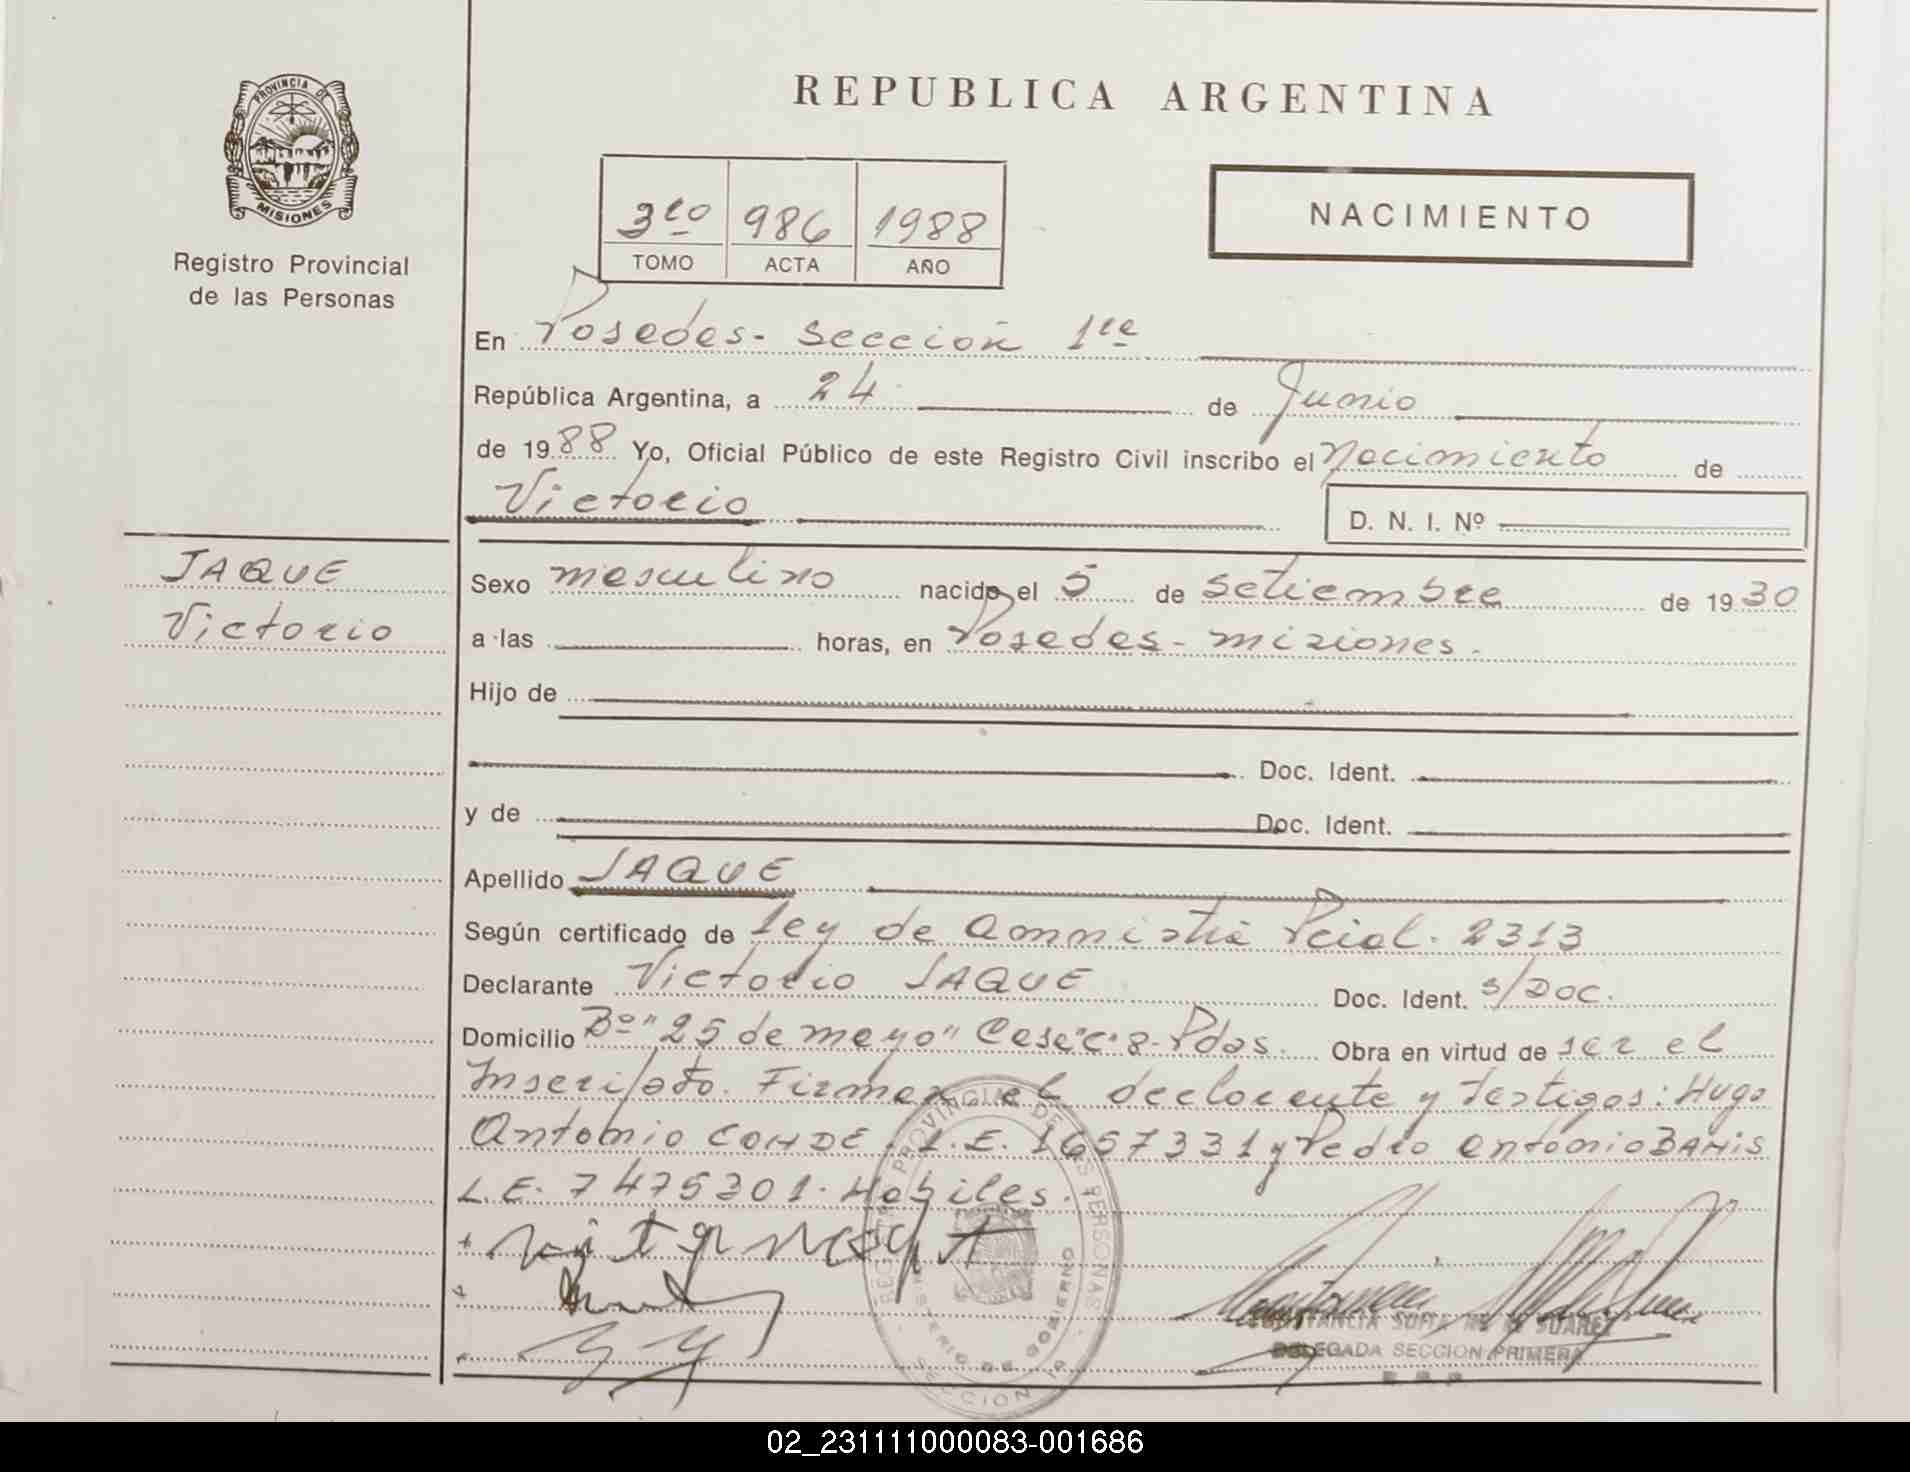 PROVINCIA DE
MISIONES
Registro Provincial
de las Personas
REPUBLICA ARGENTINA
3ro 986 1988
TOMO ACTA AÑO
NACIMIENTO
En Posadas - Sección 1ra
República Argentina, a 24 de Junio
de 1988 Yo, Oficial Público de este Registro Civil inscribo el Nacimiento de
Victorio D. N. I. Nº
JAQUE
Victorio
Sexo masculino nacido el 5 de Setiembre de 1930
a las horas, en Posadas - Misiones.
Hijo de
Doc. Ident.
y de Doc. Ident.
Apellido JAQUE
Según certificado de Ley de Amnistia Pcial. 2313
Declarante Victorio JAQUE Doc. Ident. s/DOC.
Domicilio Bº "25 de mayo" Casa "C" 8 - Pdas. Obra en virtud de ser el
Inscripto. Firman el declarante y testigos: Hugo
Antonio CONDE. L.E. 1657331 y Pedro Antonio
L.E. 7475301. Habiles.
REGISTRO PROVINCIAL DE LAS PERSONAS
MINISTERIO DE GOBIERNO
SECCION 1ª
DELEGADA SECCION PRIMERA
02_231111000083-001686